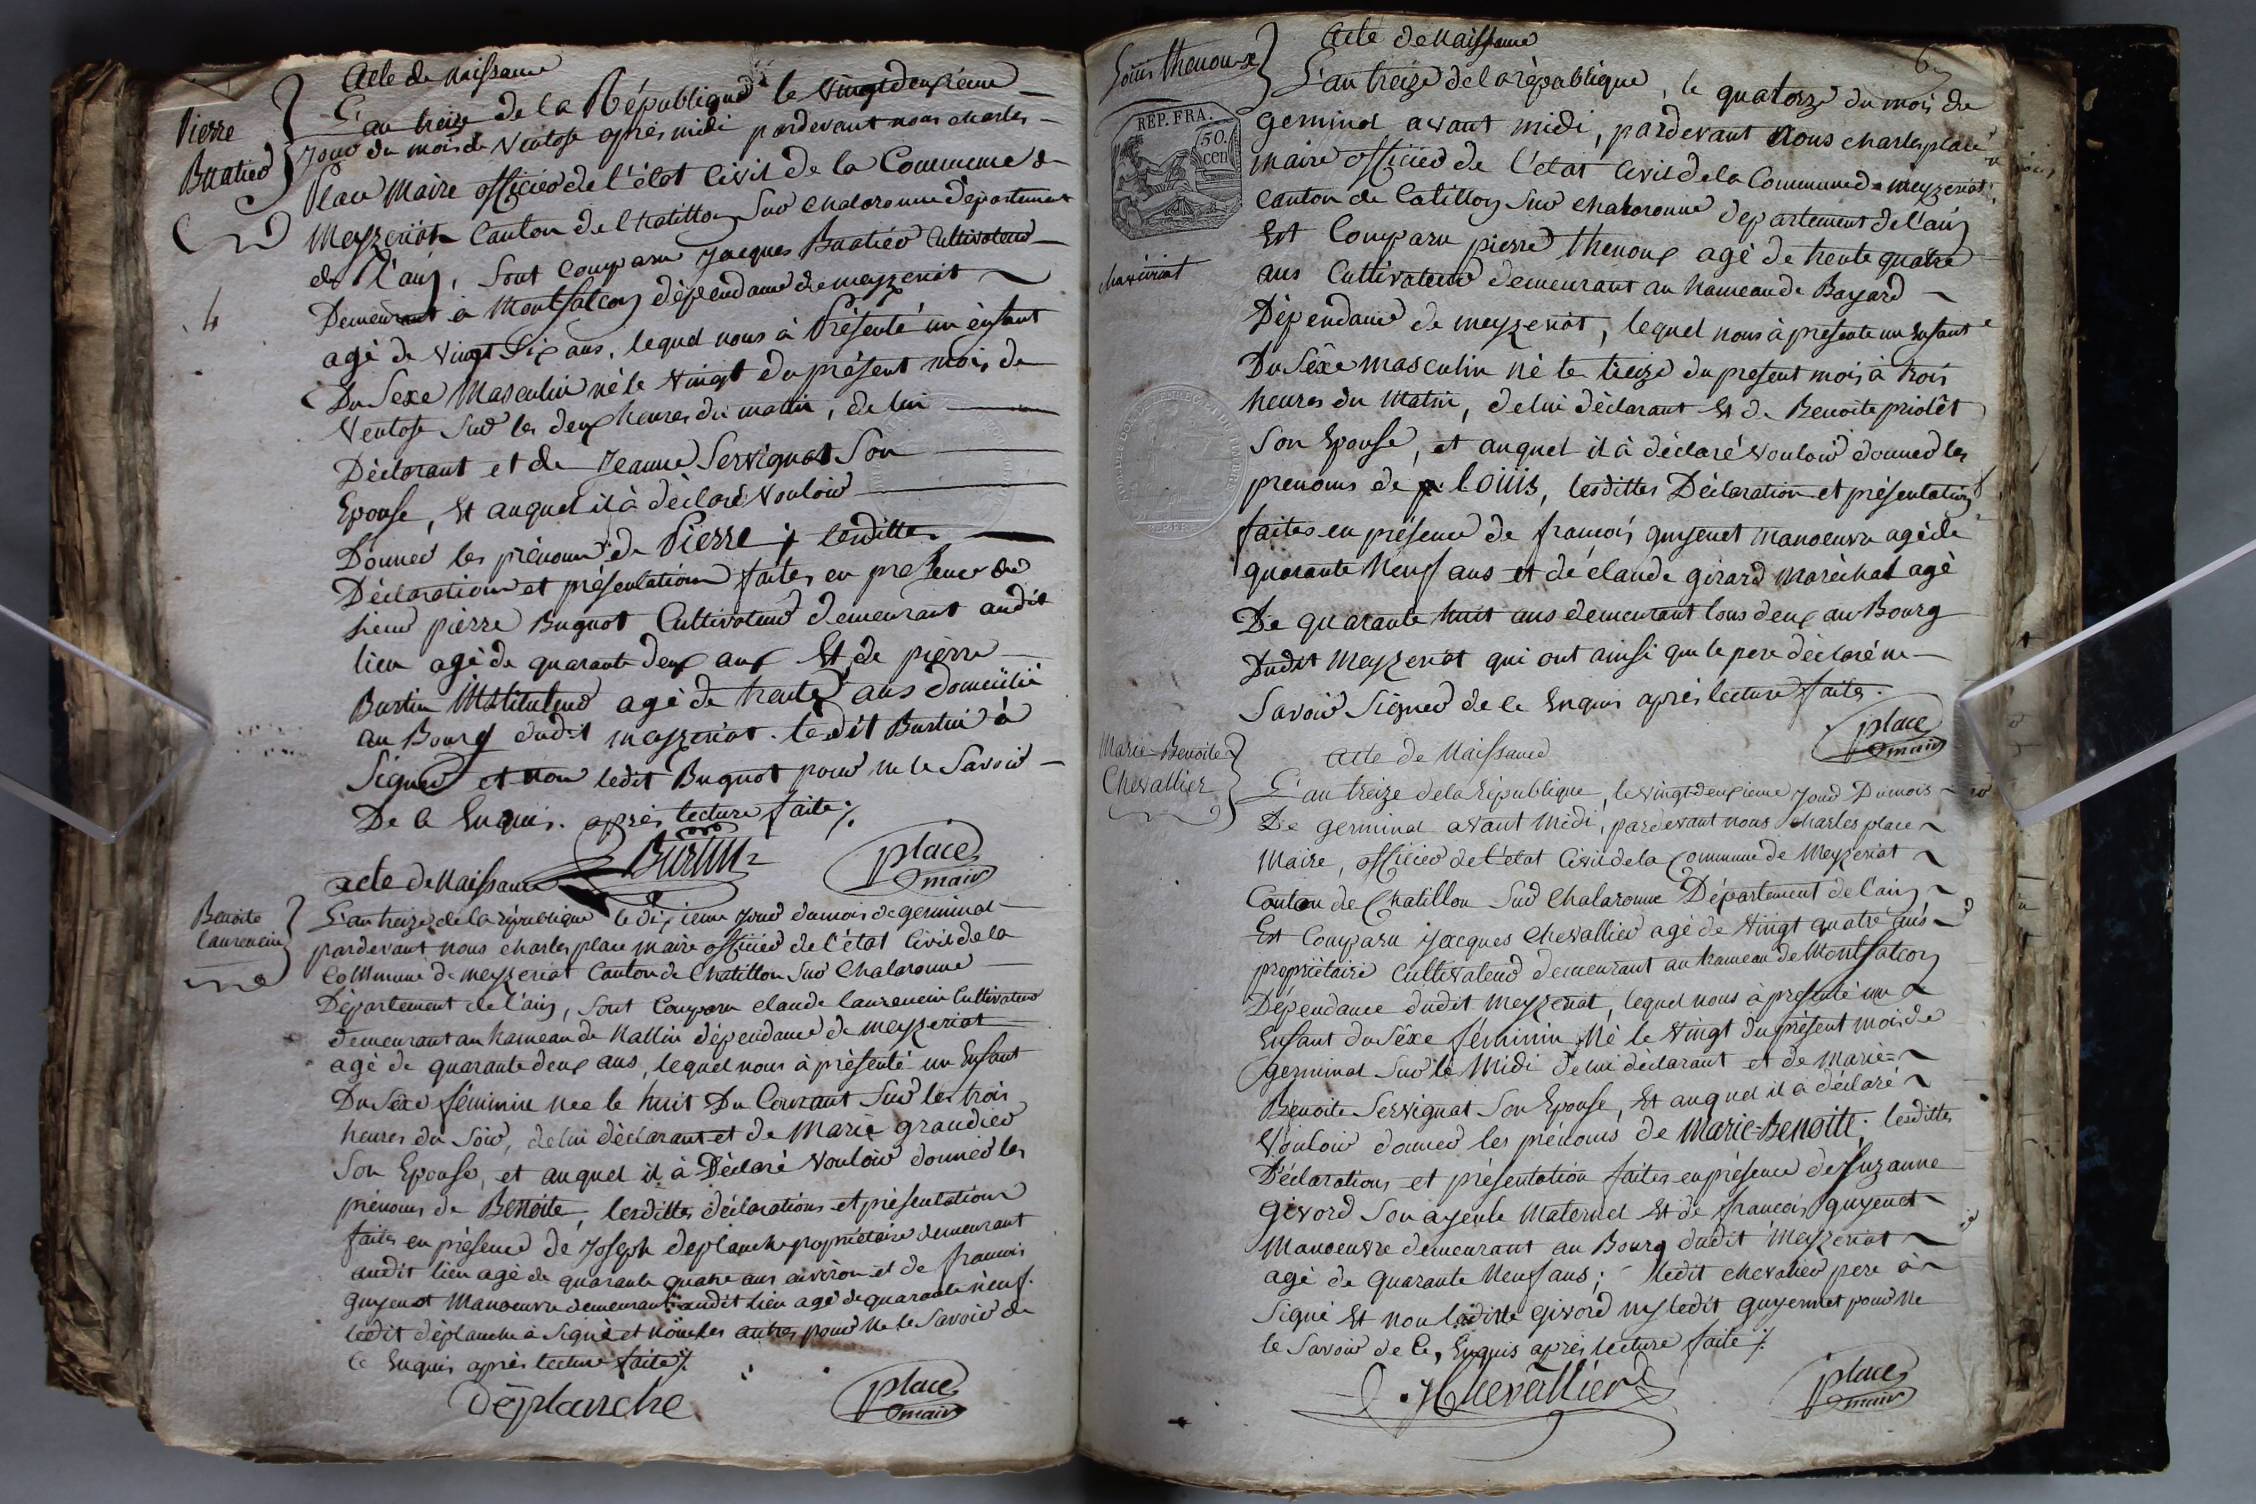 Acte de Naissance
Pierre
Buatier
L'an treize de la République le vingt deuxième
Jour du mois de Ventose après midi pardevant nous charles
Place Maire officier de l'état Civil de la Commune de
Meyzeriat Canton de Chatillon Sur Chalaronne département
de l'ain, Sont Comparu Jacques Buatier Cultivateur
Demeurant à Montfalcon dépendance de meyzeriat
agé de vingt Six ans, lequel nous à Présenté un enfant
Du Sexe Masculin né le vingt du présent mois de
Ventose Sur les deux heures du matin, de lui
Déclarant et de Jeanne Servignat Son
Epouse, Et auquel il à déclaré vouloir
Donner les prénoms de Pierre; lesdittes
Déclaration et présentation faites en presence du
Sieur pierre Bugnot Cultivateur demeurant audit
lieu agé de quarante deux ans Et de pierre
Burtin Instituteur agé de trente ans domicilié
au Bourg dudit meyzeriat. ledit Burtin à
Signer et non ledit Bugnot pour ne le Savoir
De ce Enquis. après lecture faite ./.
Burtin
place
maire
4
acte de Naissance
Benoite
laurencin
L'an treize de la république le dixieme Jour du mois de germinal
pardevant nous charles place maire officier de l'état Civil de la
Commune de meyzeriat Canton de Chatillon Sur Chalaronne
Département de l'ain, Sont Comparu claude laurencin Cultivateur
demeurant au hameau de Nallin dépendance de meyzeriat
agé de quarante deux ans, lequel nous à présenté un Enfant
Du Sexe féminin nee le huit Du Courant Sur les trois
heures du Soir, de lui déclarant et de Marie grandier
Son Epouse, et auquel il à Déclaré vouloir donner les
prénoms de Benoite, lesdittes déclarations et présentation
faites en présence de Joseph deplanche propriétaire demeurant
audit lieu agé de quarante quatre ans environ et de francois
guyenet Manoeuvre demeurant audit lieu agé de quarante neuf
ledit déplanche à Signé et non les autres pour ne le Savoir de
ce Enquis après lecture faite ./.
déplanche
place
maire
Acte de Naissance
Louis thenoux
REP. FRA.
50.
cen
chaveyriat
L'an treize de la république, le quatorze du mois de
germinal avant midi, pardevant nous charles place
maire officier de l'etat Civil de la Commune de meyzeriat
Canton de Catillon Sur chalaronne departement de l'ain
Est Comparu pierre thenoux agé de trente quatre
ans Cultivateur demeurant au hameau de Bayard
Dépendance de meyzeriat, lequel nous à presente un Enfant
Du Sêxe masculin né le treize du present mois à trois
heures du matin, de lui déclarant Et de Benoite priolêt
Son Epouse, et auquel il à déclaré vouloir donner les
prenoms de Loüis, lesdittes Déclaration et présentation
faites en présence de francois guyenet manoeuvre agé de
quarante Neuf ans et de claude girard maréchal agé
De quarante huit ans demeurant tous deux au Bourg
Dudit Meyzeriat qui ont ainsi que le pere déclaré ne
Savoir Signer de ce Enquis après lecture faite.
place
maire
acte de Naissance
Marie-Benoite
Chevallier
L'an treize de la République, le vingt deuxieme Jour Du mois
De germinal avant Midi, pardevant nous charles place
Maire, officier de l'état Civil de la Commune de Meyzeriat
Canton de Chatillon Sur Chalaronne Département de l'ain
Est Comparu Jacques Chevallier agé de Vingt quatre ans
propriétaire Cultivateur demeurant au hameau de Montfalcon
Dépendance dudit Meyzeriat, lequel nous à présenté un
Enfant du Sêxe féminin Né le Vingt du présent mois de
germinal Sur le Midi de lui déclarant et de Marie=
Benoite Servignat Son Epouse, Et auquel il à déclaré
Vouloir donner les prénoms de Marie-Benoite, lesdittes
Déclarations et présentation faites en présence de Suzanne
givord Son ayeule Maternel Et de francois guyenet
Manoeuvre demeurant au Bourg dudit Meyzeriat
agé de quarante Neuf ans; ledit chevalier pere à
Signé Et non laditte givord ny ledit guyennet pour Ne
le Savoir de Ce, Enquis après lecture faite ./.
J Chevallier
place
maire